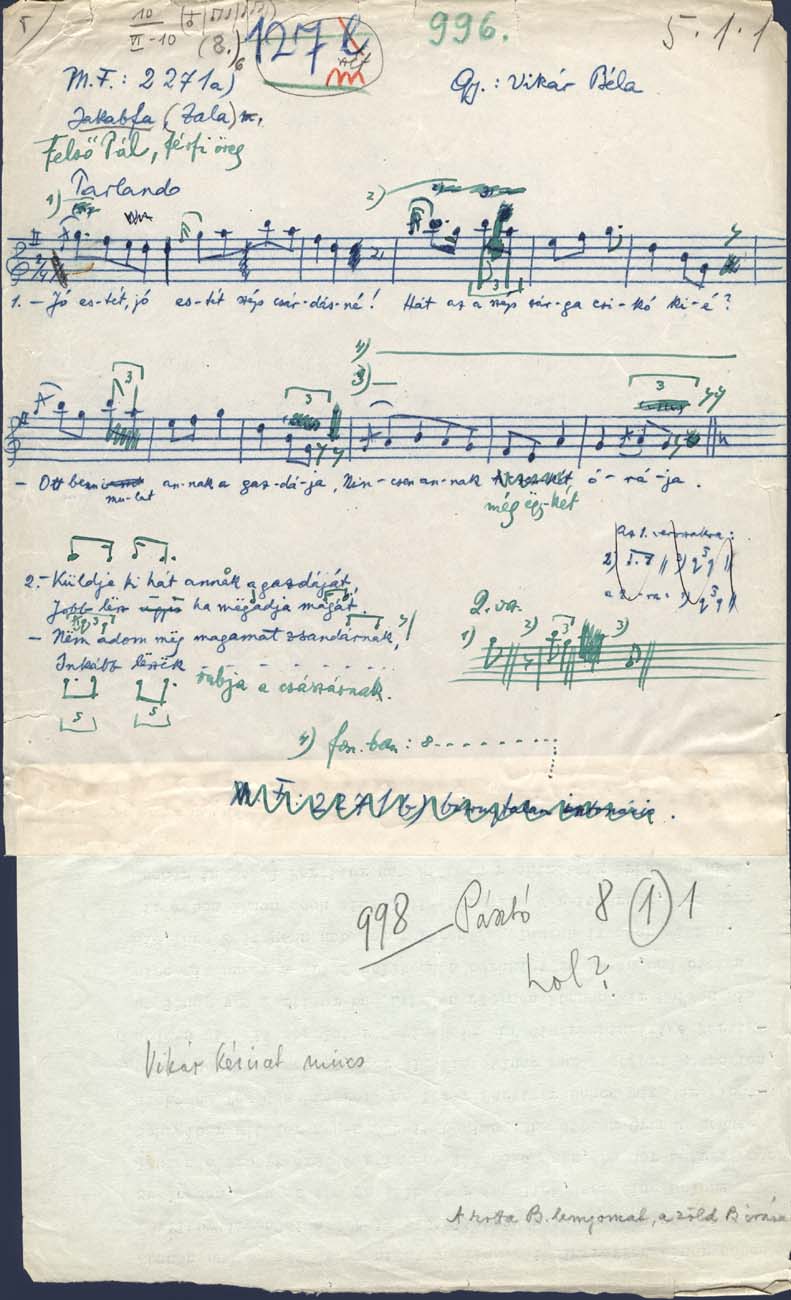 10
VI-10
(8.)
127
m
996.
5.1.1
M.F.: 2271a)
Gy.: Vikár Béla
Jakabfa, (Zala) m.
Felső Pál, férfi öreg
Parlando
1) 2)
1. – Jó es-tét, jó es-tét szép csár-dás-né! Hát az a szép sár-ga csi-kó ki-é?
4)
3)
– Ott benn mu-lat an-nak a gaz-dá-ja, Nin-csen an-nak még egy-két ó-rá-ja.
Az 1. versszakra:
2.– Küldje ki hát annak a gazdáját,
Jobb lesz ha mëgadja magát.
– Nëm adom mëg magamat zsandárnak,
Inkább lëszëk rabja a császárnak.
2. vsz.
1) 2) 3)
4) fon.ban: 8
M.F.: 2271 b)
998 Pásztó 8 1 1
hol?
Vikár kézirat nincs
A kotta B. lenyomat, a zöld B írása